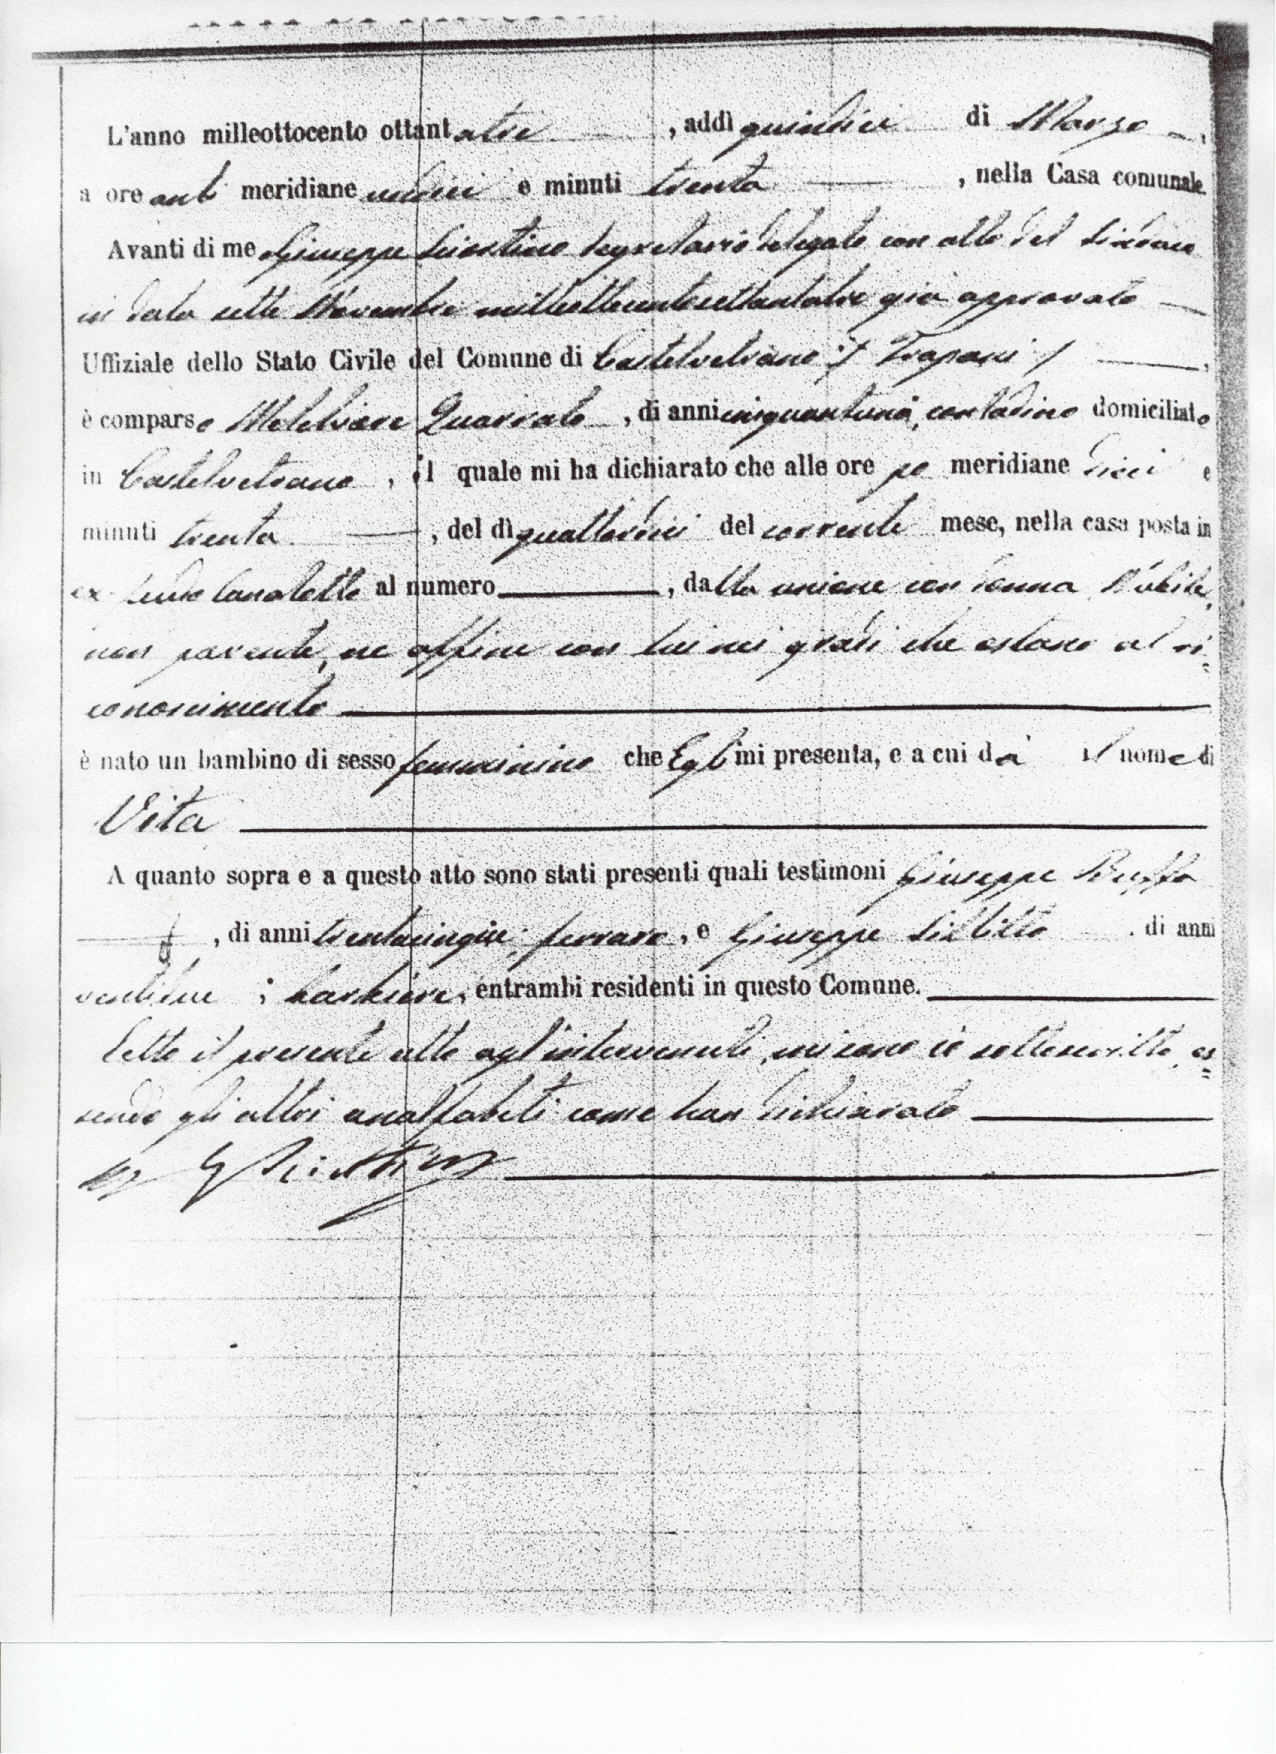 L'anno milleottocento ottantatre, addì quindici di Marzo,
a ore anti meridiane undici e minuti trenta, nella Casa comunale.
Avanti di me Giuseppe Segretario delegato con atto del Sindaco
in data sette Novembre già approvato
Uffiziale dello Stato Civile del Comune di Castelvetrano (Trapani),
è comparso Quarrato, di anni cinquantuno, contadino domiciliato
in Castelvetrano, il quale mi ha dichiarato che alle ore po meridiane dieci e
minuti trenta, del dì quattordici del corrente mese, nella casa posta in
ex feudo al numero, dalla unione con donna Nubile,
non parente, ne affine con lui nei gradi che ostano al ri=
conoscimento
è nato un bambino di sesso femminino che Egli mi presenta, e a cui dà il nome di
Vita
A quanto sopra e a questo atto sono stati presenti quali testimoni Giuseppe Buffa
, di anni trentacinque, ferraro, e Giuseppe, di anni
ventidue, barbiere, entrambi residenti in questo Comune.
Letto il presente atto agl'intervenuti, mi sono io sottoscritto, es=
sendo gli altri analfabeti come han dichiarato